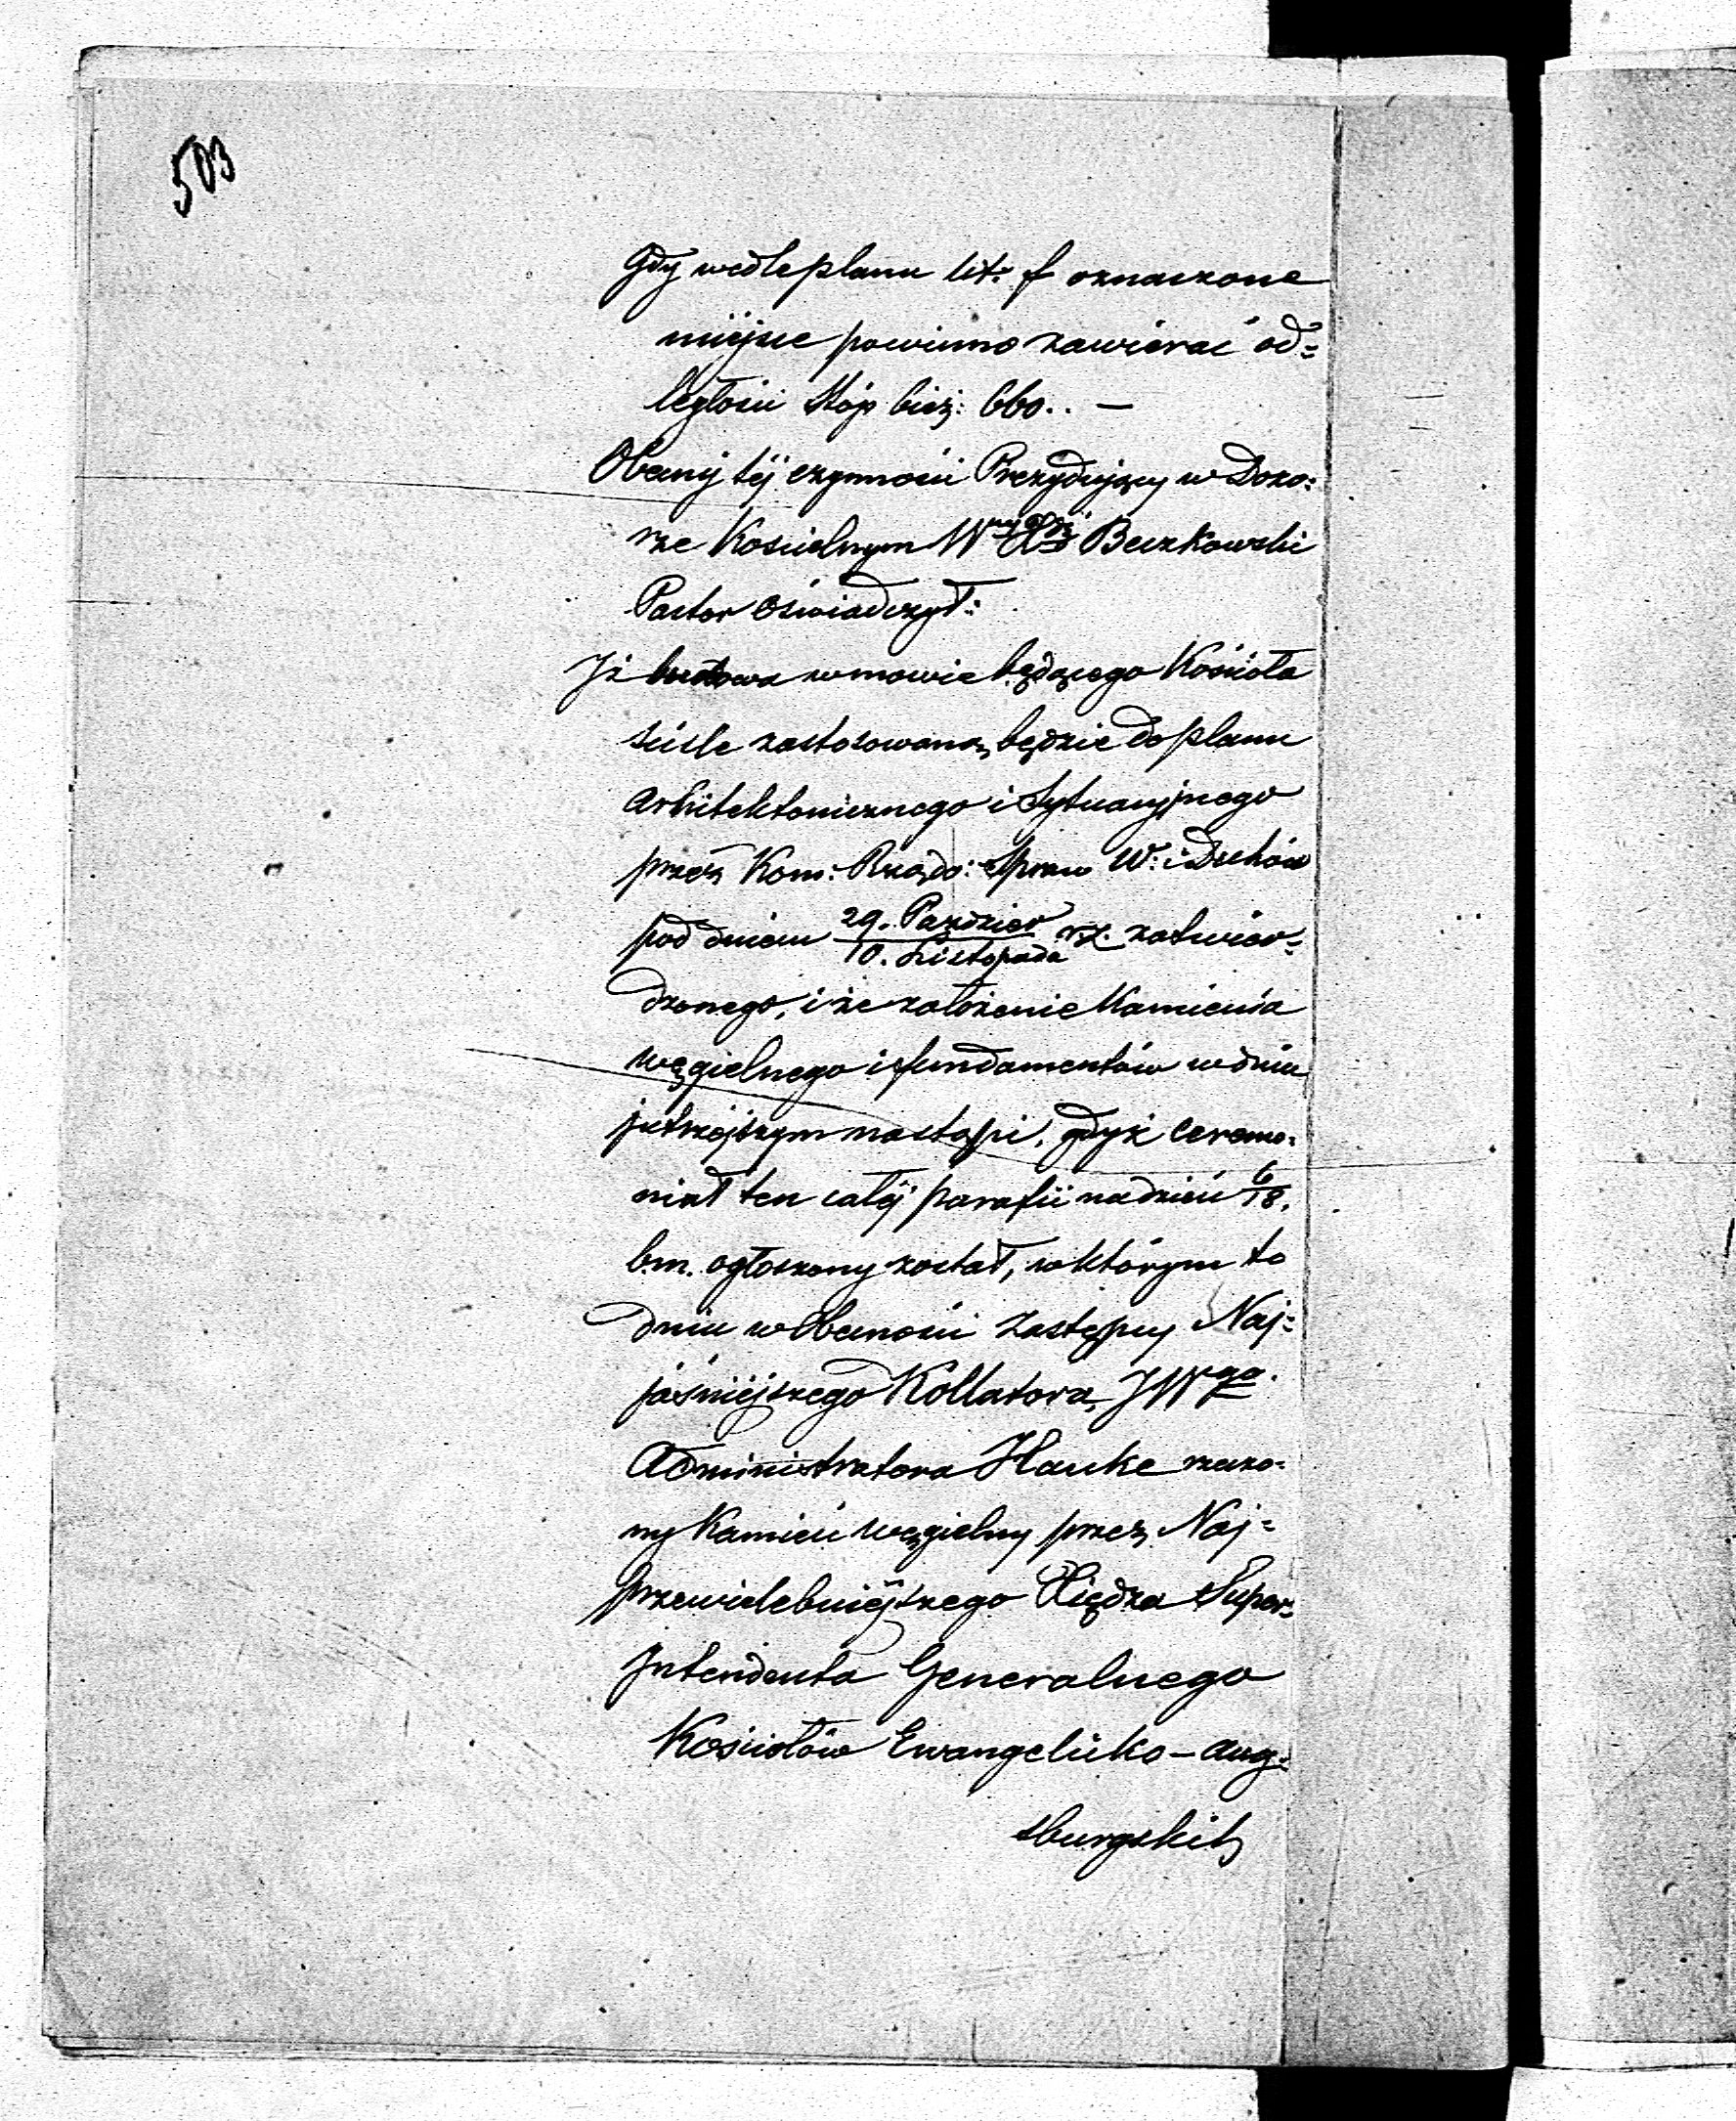 503
Gdy wedle planu lit: f oznaczone
miejsce powinno zawiérać od=
ległości Stóp bież: 660.. —
Obecny téj czynności Prezydujący w Dozo:
rze Kościelnym Wny Xdz Beczkowski
Pastor oświadczył:
Iż budowa w mowie będącego Kościoła
ściśle zastosowaną będzie do planu
Arhitektonicznego i Sytuacyjnego
przez Kom: Rządo: Spraw W: i Duchów
pod dniem 29. Pazdzier / 10. Listopada rz. zatwier=
dzonego, i że założenie Kamienia
węgielnego i fundamentów w dniu
jutrzéjszym nastąpi, gdyż ceremo:
niał ten całéj parafii na dzień 6/18.
b.m. ogłoszony został, w którym to
dniu w Obecności zastępcy Naj=
jaśniéjszego Kollatora, JWgo.
Administratora Hauke rzeczo:
ny Kamień węgielny przez Naj=
przewielebniéjszego Xiędza Super=
Intendenta Generalnego
Kościołów Ewangelicko-Aug=
sburgskich